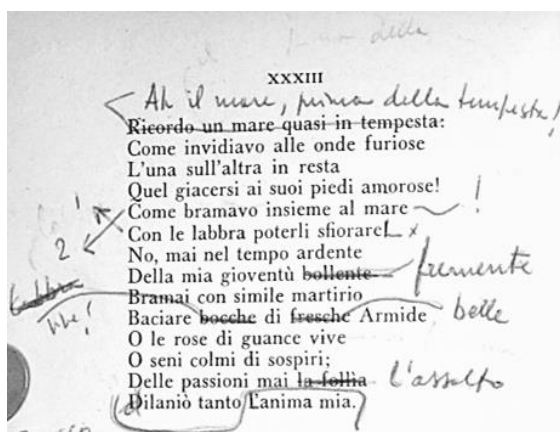 della
XXXIII
Ah il mare, prima della tempesta!
Ricordo un mare quasi in tempesta:
Come invidiavo alle onde furiose
L'una sull'altra in resta
Quel giacersi ai suoi piedi amorose!
1 Come bramavo insieme al mare !
2 Con le labbra poterli sfiorare! x
No, mai nel tempo ardente
Della mia gioventù bollente fremente
Bramai con simile martirio
Baciare bocche di fresche Armide belle
O le rose di guance vive
O seni colmi di sospiri;
Delle passioni mai la follia l'assalto
Dilaniò tanto L'anima mia.